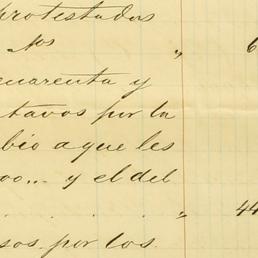 protestados
Nos " 6
cuarenta y
tavos por la
bio a que les
oo... y el del
. . . . " 44
sos por los